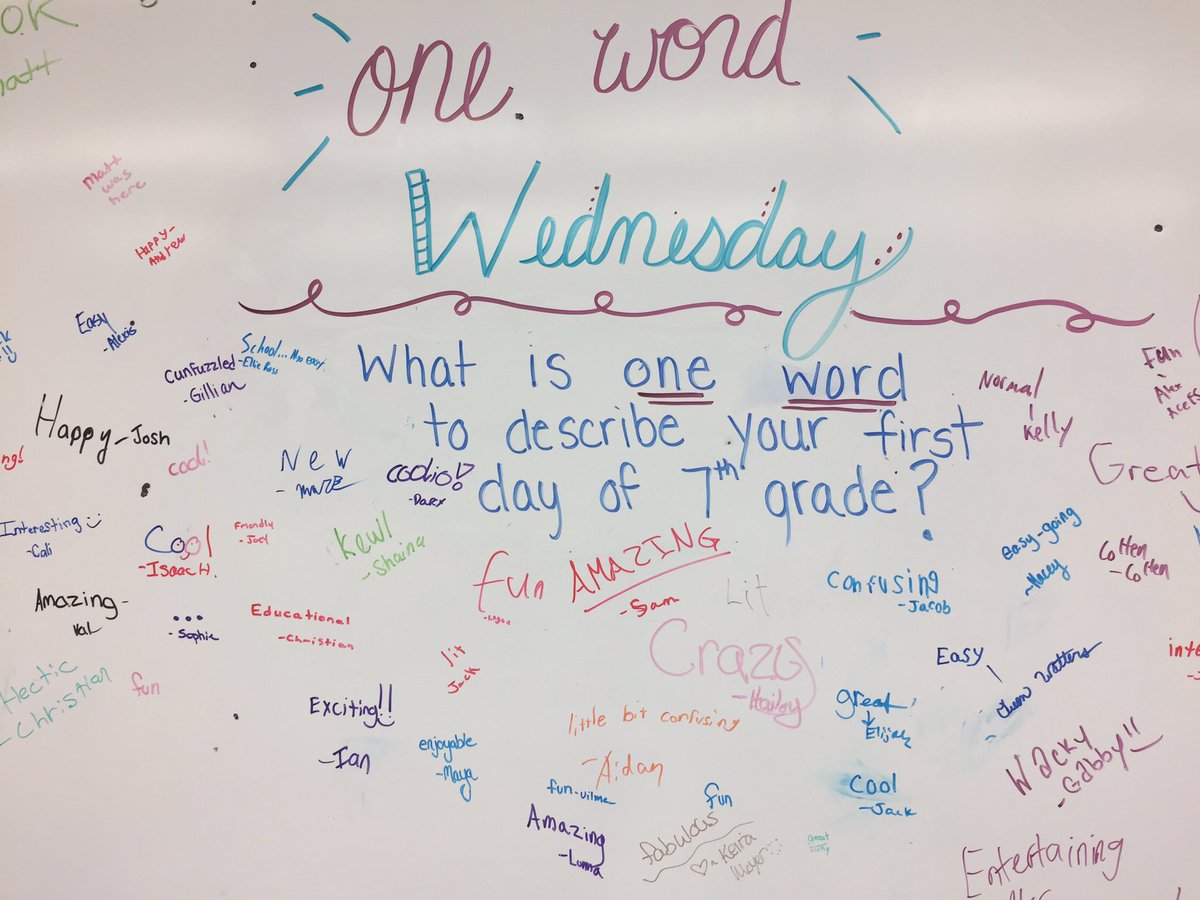 O.K
matt
one word
Wednesday
matt
was
here
Happy-
Andrew
What is one word
to describe your first
day of 7th grade?
Easy
-Alexis
Cunfuzzled
-Gillian
School...
-Ellie Ross
Happy-Josh
cool!
New
coolio!
Normal
Kelly
Fun
Alex
Great
Interesting
-Cali
Cool
-Isaac H.
Friendly
-Joey
Kewl
-Shaina
fun
AMAZING
-Sam
Lit
confusing
-Jacob
easy-going
-Macey
Cotten
-Cotten
Amazing-
Val
...
-Sophie
Educational
-Christian
lit
Jack
Crazy
-Hailey
Easy
Hectic
- Christian
fun
Exciting!!
-Ian
enjoyable
-Maya
little bit confusing
-Aidan
great
Elijah
Wacky
-Gabby!!
fun-vilme
fun
cool
-Jack
Amazing
-Lunna
fabulous
- Keira
Moyer
great
Entertaining